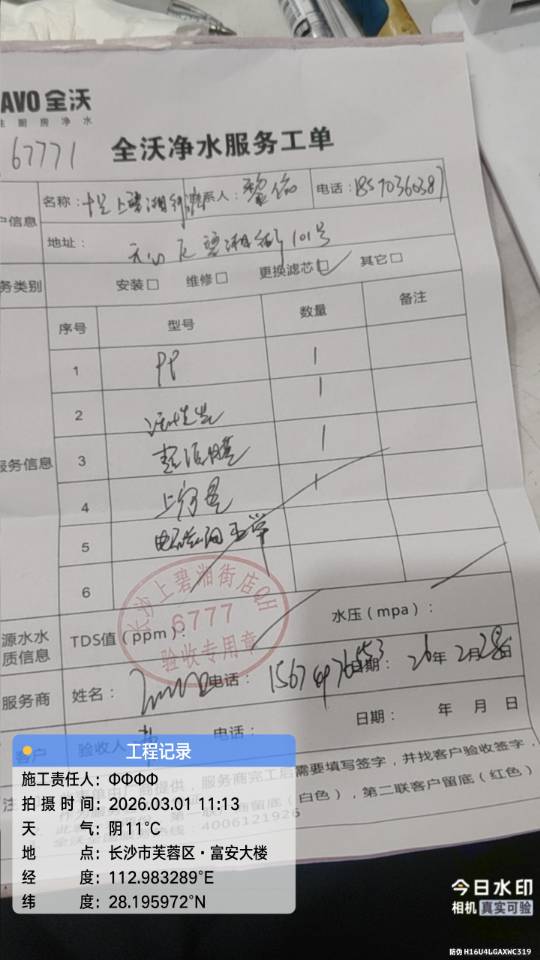 AVO 全沃
住厨房净水
67771
全沃净水服务工单
户信息
名称：
上碧湘街
系人：
黎
电话：
地址：
天心区碧湘街101号
务类别
安装□ 维修□ 更换滤芯□ 其它□
序号 型号 数量 备注
服务信息
1 PP 1
2 活性炭 1
3 超滤膜 1
4 1
5
6
源水水质信息
TDS值（ppm）：
水压（mpa）：
长沙上碧湘街店
6777
验收专用章
服务商
姓名：
电话：
日期：26年2月28日
客户
验收人
电话：
日期： 年 月 日
需要填写签字，并找客户验收签字，
（白色），第二联客户留底（红色）
4006121926
工程记录
施工责任人：ФФФФ
拍摄时间：2026.03.01 11:13
天气：阴11℃
地点：长沙市芙蓉区·富安大楼
经度：112.983289°E
纬度：28.195972°N
今日水印
相机 真实可验
防伪 H16U4LGAXWC319